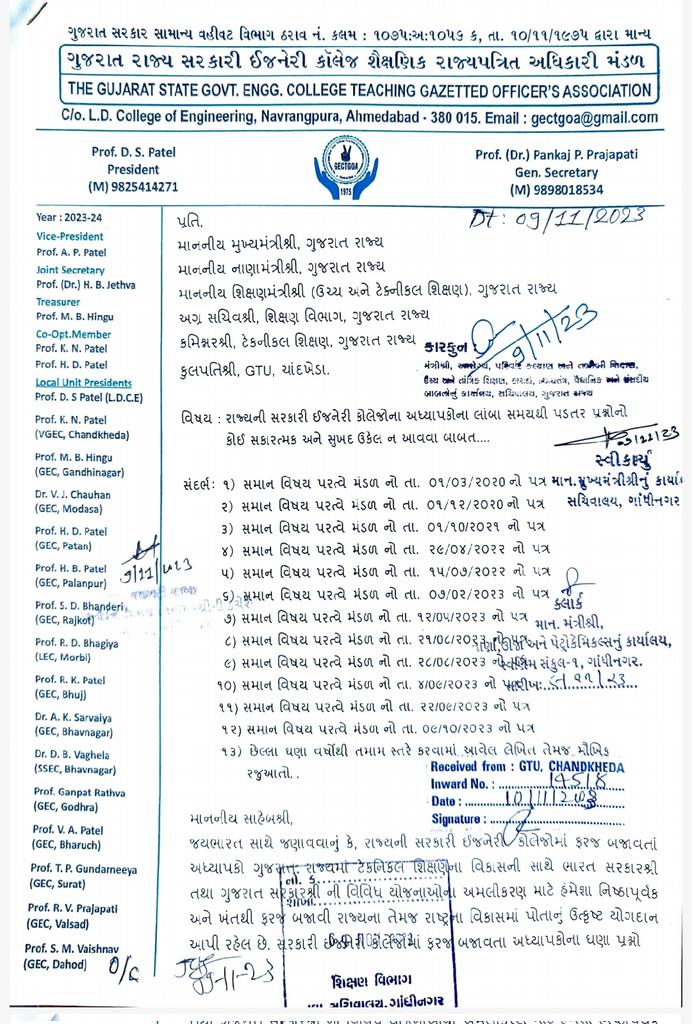 ગુજરાત સરકાર સામાન્ય વહીવટ વિભાગ ઠરાવ નં. કલમ : ૧૦૭૫:અ:૧૦૫૬ ક, તા. ૧૦/૧૧/૧૯૭૫ દ્વારા માન્ય
ગુજરાત રાજ્ય સરકારી ઈજનેરી કૉલેજ શૈક્ષણિક રાજ્યપત્રિત અધિકારી મંડળ
THE GUJARAT STATE GOVT. ENGG. COLLEGE TEACHING GAZETTED OFFICER'S ASSOCIATION
C/o. L.D. College of Engineering, Navrangpura, Ahmedabad - 380 015. Email : gectgoa@gmail.com
Prof. D. S. Patel
President
(M) 9825414271
GECTGOA
1975
Prof. (Dr.) Pankaj P. Prajapati
Gen. Secretary
(M) 9898018534
Dt : 09/11/2023
Year : 2023-24
Vice-President
Prof. A. P. Patel
Joint Secretary
Prof. (Dr.) H. B. Jethva
Treasurer
Prof. M. B. Hingu
Co-Opt.Member
Prof. K. N. Patel
Prof. H. D. Patel
Local Unit Presidents
Prof. D. S Patel (L.D.C.E)
Prof. K. N. Patel
(VGEC, Chandkheda)
Prof. M. B. Hingu
(GEC, Gandhinagar)
Dr. V. J. Chauhan
(GEC, Modasa)
Prof. H. D. Patel
(GEC, Patan)
Prof. H. B. Patel
(GEC, Palanpur)
Prof. S. D. Bhanderi
(GEC, Rajkot)
Prof. R. D. Bhagiya
(LEC, Morbi)
Prof. R. K. Patel
(GEC, Bhuj)
Dr. A. K. Sarvaiya
(GEC, Bhavnagar)
Dr. D. B. Vaghela
(SSEC, Bhavnagar)
Prof. Ganpat Rathva
(GEC, Godhra)
Prof. V. A. Patel
(GEC, Bharuch)
Prof. T. P. Gundarneeya
(GEC, Surat)
Prof. R. V. Prajapati
(GEC, Valsad)
Prof. S. M. Vaishnav
(GEC, Dahod)
O/C
9/11/2023
પ્રતિ,
માનનીય મુખ્યમંત્રીશ્રી, ગુજરાત રાજ્ય
માનનીય નાણામંત્રીશ્રી, ગુજરાત રાજ્ય
માનનીય શિક્ષણમંત્રીશ્રી (ઉચ્ચ અને ટેકનીકલ શિક્ષણ), ગુજરાત રાજ્ય
અગ્ર સચિવશ્રી, શિક્ષણ વિભાગ, ગુજરાત રાજ્ય
કમિશ્નરશ્રી, ટેકનીકલ શિક્ષણ, ગુજરાત રાજ્ય
કુલપતિશ્રી, GTU, ચાંદખેડા.
કારકુન :
9/11/23
મંત્રીશ્રી, આરોગ્ય, પરિવાર કલ્યાણ અને તબીબી શિક્ષણ,
ઉચ્ચ અને તાંત્રિક શિક્ષણ, કાયદો, ન્યાયતંત્ર, વૈધાનિક અને સંસદીય
બાબતોનું કાર્યાલય, સચિવાલય, ગુજરાત રાજ્ય
વિષય : રાજ્યની સરકારી ઈજનેરી કોલેજોના અધ્યાપકોના લાંબા સમયથી પડતર પ્રશ્નોનો
કોઈ સકારત્મક અને સુખદ ઉકેલ ન આવવા બાબત....
સ્વીકાર્યું
માન.મુખ્યમંત્રીશ્રીનું કાર્યા
સચિવાલય, ગાંધીનગર
સંદર્ભ: ૧) સમાન વિષય પરત્વે મંડળ નો તા. ૦૧/૦૩/૨૦૨૦ નો પત્ર
૨) સમાન વિષય પરત્વે મંડળ નો તા. ૦૧/૧૨/૨૦૨૦ નો પત્ર
૩) સમાન વિષય પરત્વે મંડળ નો તા. ૦૧/૧૦/૨૦૨૧ નો પત્ર
૪) સમાન વિષય પરત્વે મંડળ નો તા. ૨૯/૦૪/૨૦૨૨ નો પત્ર
૫) સમાન વિષય પરત્વે મંડળ નો તા. ૧૫/૦૭/૨૦૨૨ નો પત્ર
૬) સમાન વિષય પરત્વે મંડળ નો તા. ૦૭/૦૨/૨૦૨૩ નો પત્ર
૭) સમાન વિષય પરત્વે મંડળ નો તા. ૧૨/૦૫/૨૦૨૩ નો પત્ર
૮) સમાન વિષય પરત્વે મંડળ નો તા. ૨૧/૦૮/૨૦૨૩
૯) સમાન વિષય પરત્વે મંડળ નો તા. ૨૮/૦૮/૨૦૨૩
૧૦) સમાન વિષય પરત્વે મંડળ નો તા. ૪/૦૯/૨૦૨૩ નો
૧૧) સમાન વિષય પરત્વે મંડળ નો તા. ૨૨/૦૯/૨૦૨૩ નો પત્ર
૧૨) સમાન વિષય પરત્વે મંડળ નો તા. ૦૯/૧૦/૨૦૨૩ નો પત્ર
૧૩) છેલ્લા ઘણા વર્ષોથી તમામ સ્તરે કરવામાં આવેલ લેખિત તેમજ મૌખિક
રજુઆતો..
ક્લાર્ક
માન. મંત્રીશ્રી,
નાણા,ઊર્જા અને પેટ્રોકેમિકલ્સનું કાર્યાલય,
સ્વર્ણિમ સંકુલ-૧, ગાંધીનગર.
તારીખ:
Received from : GTU, CHANDKHEDA
Inward No. : 14518
Date : 10/11/2023
Signature :
માનનીય સાહેબશ્રી,
જયભારત સાથે જણાવવાનું કે, રાજ્યની સરકારી ઈજનેરી કોલેજોમાં ફરજ બજાવતાં
અધ્યાપકો ગુજરાત રાજ્યમાં ટેકનિકલ શિક્ષણના વિકાસની સાથે ભારત સરકારશ્રી
તથા ગુજરાત સરકારશ્રી ની વિવિધ યોજનાઓના અમલીકરણ માટે હંમેશા નિષ્ઠાપૂર્વક
અને ખંતથી ફરજ બજાવી રાજ્યના તેમજ રાષ્ટ્રના વિકાસમાં પોતાનું ઉત્કૃષ્ટ યોગદાન
આપી રહેલ છે. સરકારી ઈજનેરી કોલેજોમાં ફરજ બજાવતા અધ્યાપકોના ઘણા પ્રશ્નો
શિક્ષણ વિભાગ
સચિવાલય,ગાંધીનગર